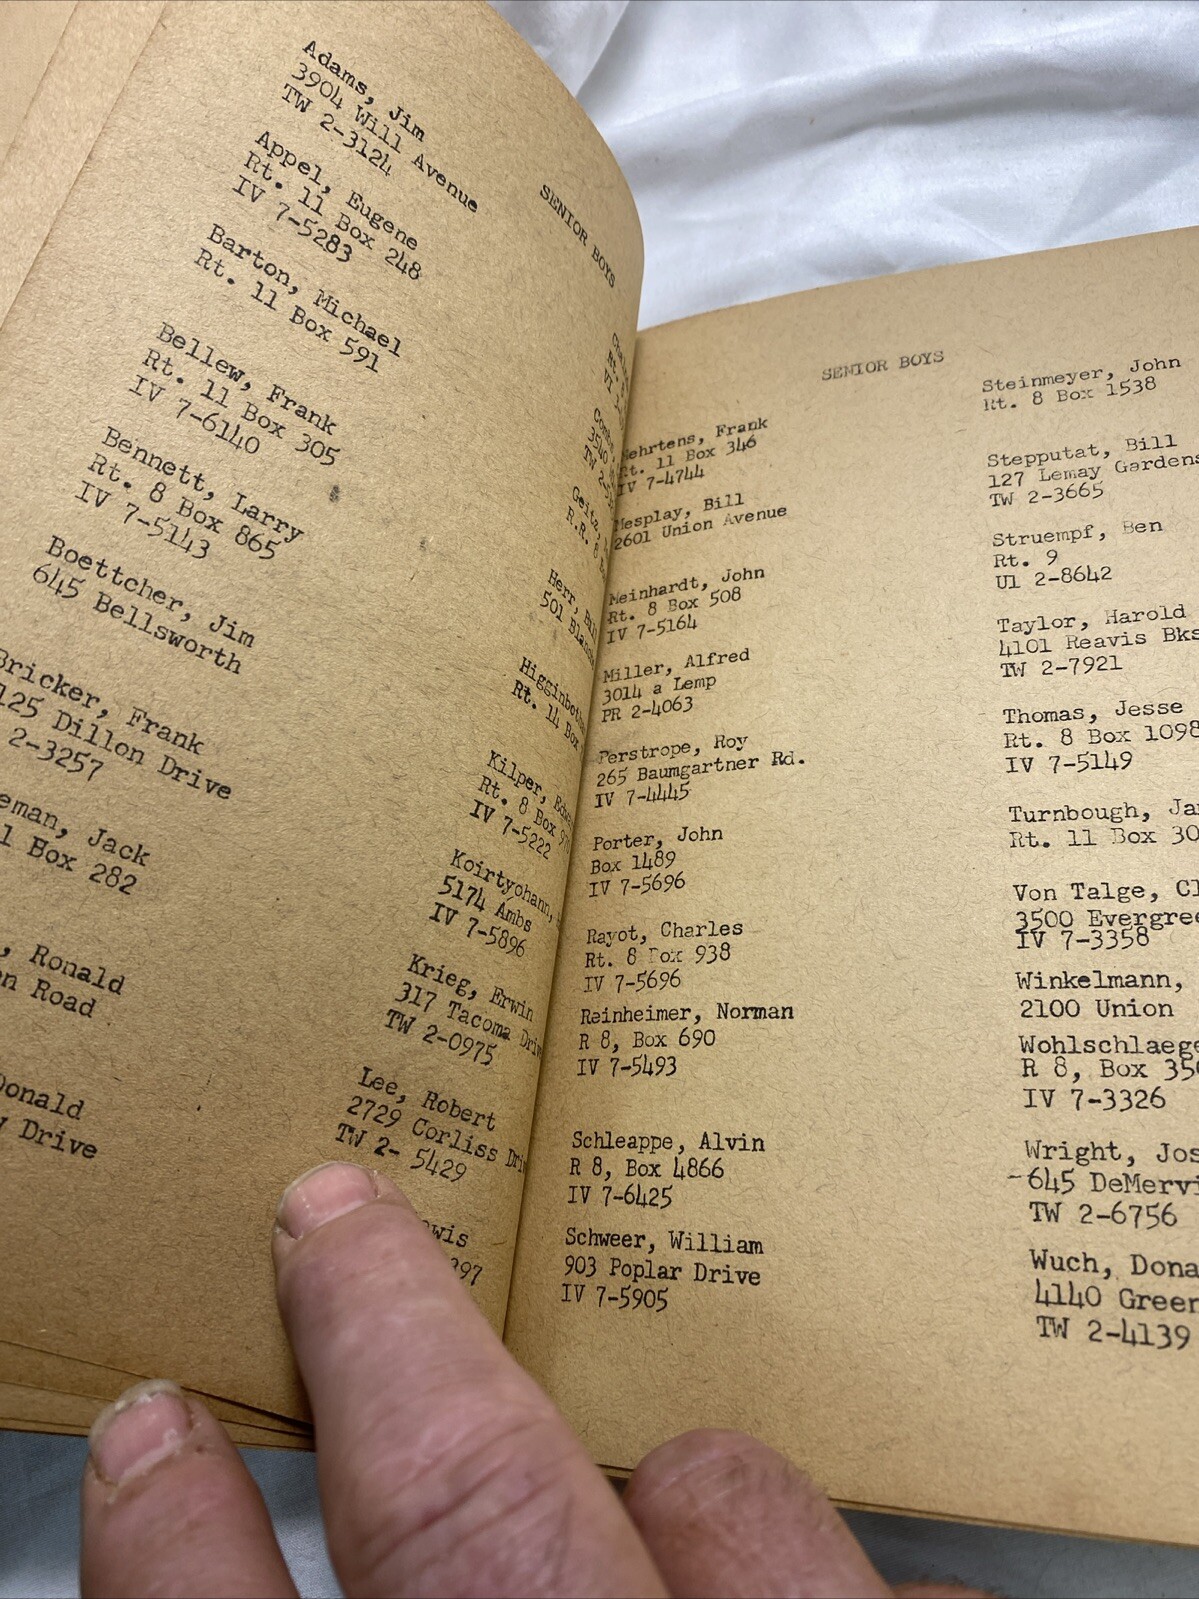 SENIOR BOYS
Adams, Jim
3904 Will Avenue
TW 2-3124
Appel, Eugene
Rt. 11 Box 248
IV 7-5283
Barton, Michael
Rt. 11 Box 591
Bellew, Frank
Rt. 11 Box 305
IV 7-6140
Bennett, Larry
Rt. 8 Box 865
IV 7-5143
Boettcher, Jim
645 Bellsworth
Bricker, Frank
125 Dillon Drive
2-3257
Jack
Box 282
Ronald
Road
Donald
Drive
Rt.
VI
3540
TW
Geitz,
R.R. 8
Herr,
501
Rt. 14 Box
Kilper,
Rt. 8 Box
IV 7-5222
Koirtyohann,
5174 Ambs
IV 7-5896
Krieg, Erwin
317 Tacoma
TW 2-0975
Lee, Robert
2729 Corliss
TW 2- 5429
SENIOR BOYS
Frank
Rt. 11 Box 346
IV 7-4744
Mesplay, Bill
2601 Union Avenue
Meinhardt, John
Rt. 8 Box 508
IV 7-5164
Miller, Alfred
3014 a Lemp
PR 2-4063
Perstrope, Roy
265 Baumgartner Rd.
IV 7-4445
Porter, John
Box 1489
IV 7-5696
Rayot, Charles
Rt. 8 Box 938
IV 7-5696
Reinheimer, Norman
R 8, Box 690
IV 7-5493
Schleappe, Alvin
R 8, Box 4866
IV 7-6425
Schweer, William
903 Poplar Drive
IV 7-5905
Steinmeyer, John
Rt. 8 Box 1538
Stepputat, Bill
127 Lemay Gardens
TW 2-3665
Struempf, Ben
Rt. 9
Ul 2-8642
Taylor, Harold
4101 Reavis Bks
TW 2-7921
Thomas, Jesse
Rt. 8 Box 1098
IV 7-5149
Turnbough,
Rt. 11 Box
Von Talge,
3500
IV 7-3358
Winkelmann,
2100 Union
R 8, Box
IV 7-3326
Wright,
645
TW 2-6756
Wuch,
4140
TW 2-4139